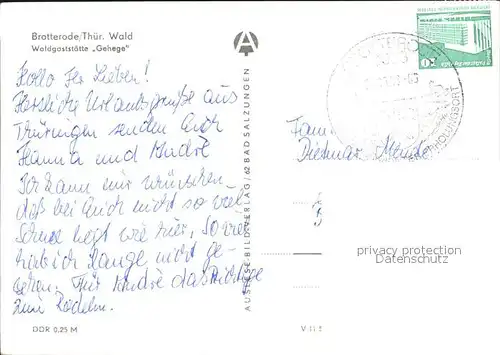 Brotterode/Thür. Wald
Waldgaststätte „Gehege"
Hallo Ihr Lieben!
Herzliche Urlaubsgrüße aus
Thüringen senden Euch
Hanna und André
Ich kann mir wünschen
daß bei Euch nicht so viel
Schnee liegt wie hier, So viel
hab ich lange nicht ge-
sehen. Für André das Richtige
zum Rodeln.
DDR 0,25 M
AUSLESE-BILD-VERLAG / 62 BAD SALZUNGEN
Fam.
Dietmar
privacy protection
Datenschutz
V 11
10